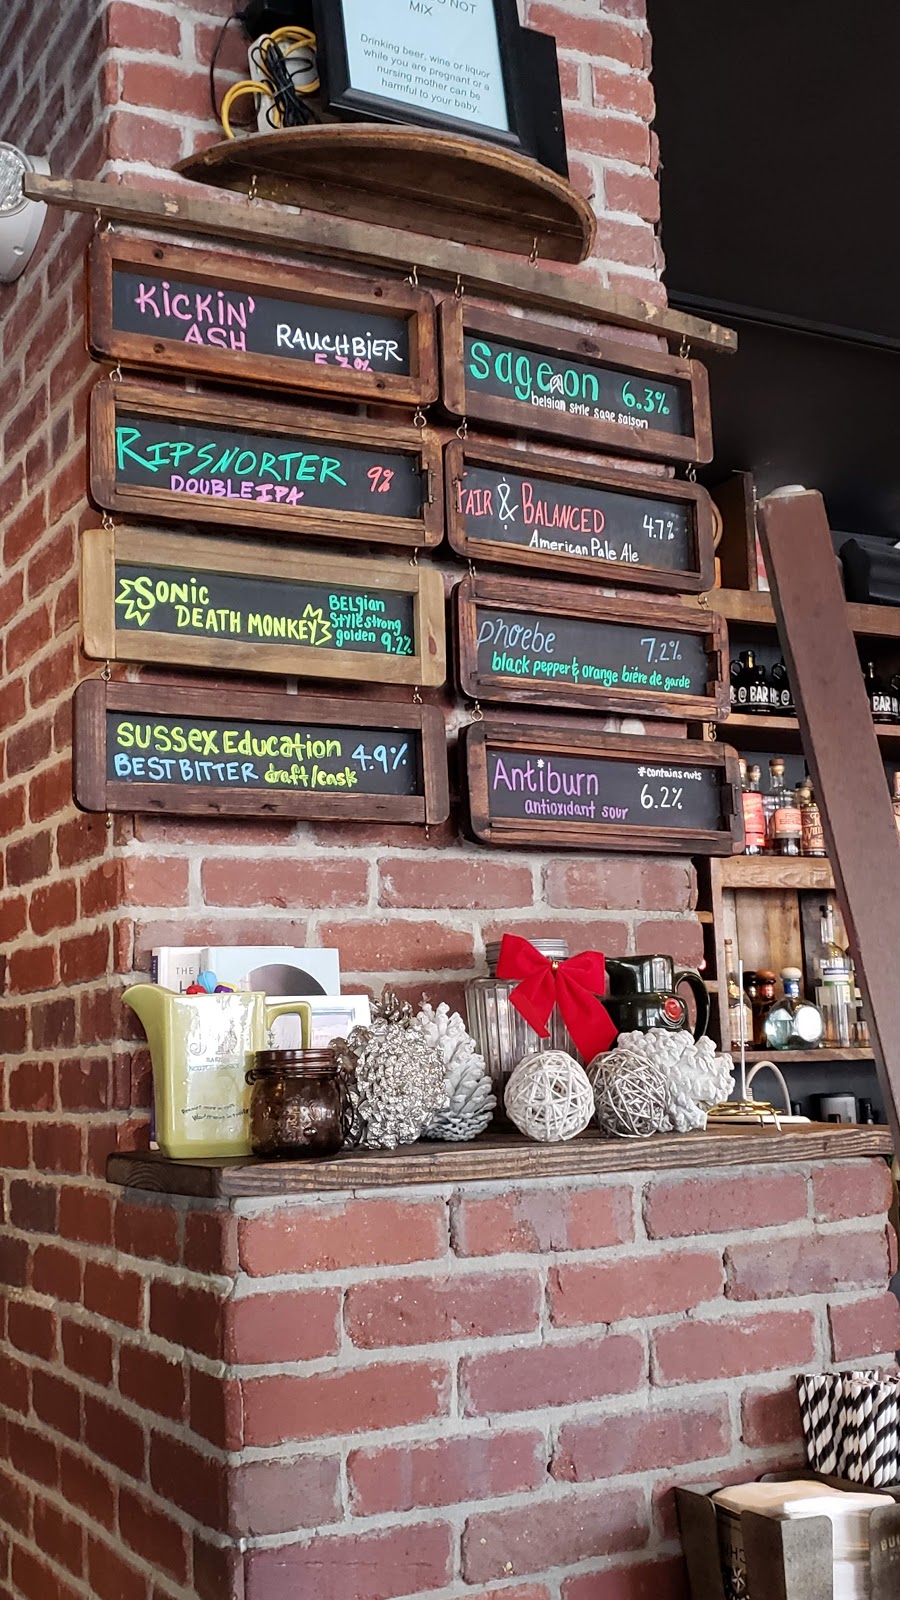 NOT
MIX
Drinking beer, wine or liquor
while you are pregnant or a
nursing mother can be
harmful to your baby.
KICKIN'
ASH RAUCHBIER
5.3%
Sage on 6.3%
belgian style sage saison
RIPSNORTER 9%
DOUBLE IPA
FAIR & BALANCED 4.7%
American Pale Ale
SONIC
DEATH MONKEY
BELgian
Style strong
golden 9.2%
phoebe 7.2%
black pepper & orange bière de garde
SUSSEX Education 4.9%
BEST BITTER draft/cask
Antiburn *contains nuts
antioxidant sour 6.2%
@ BAR
BAR
THE